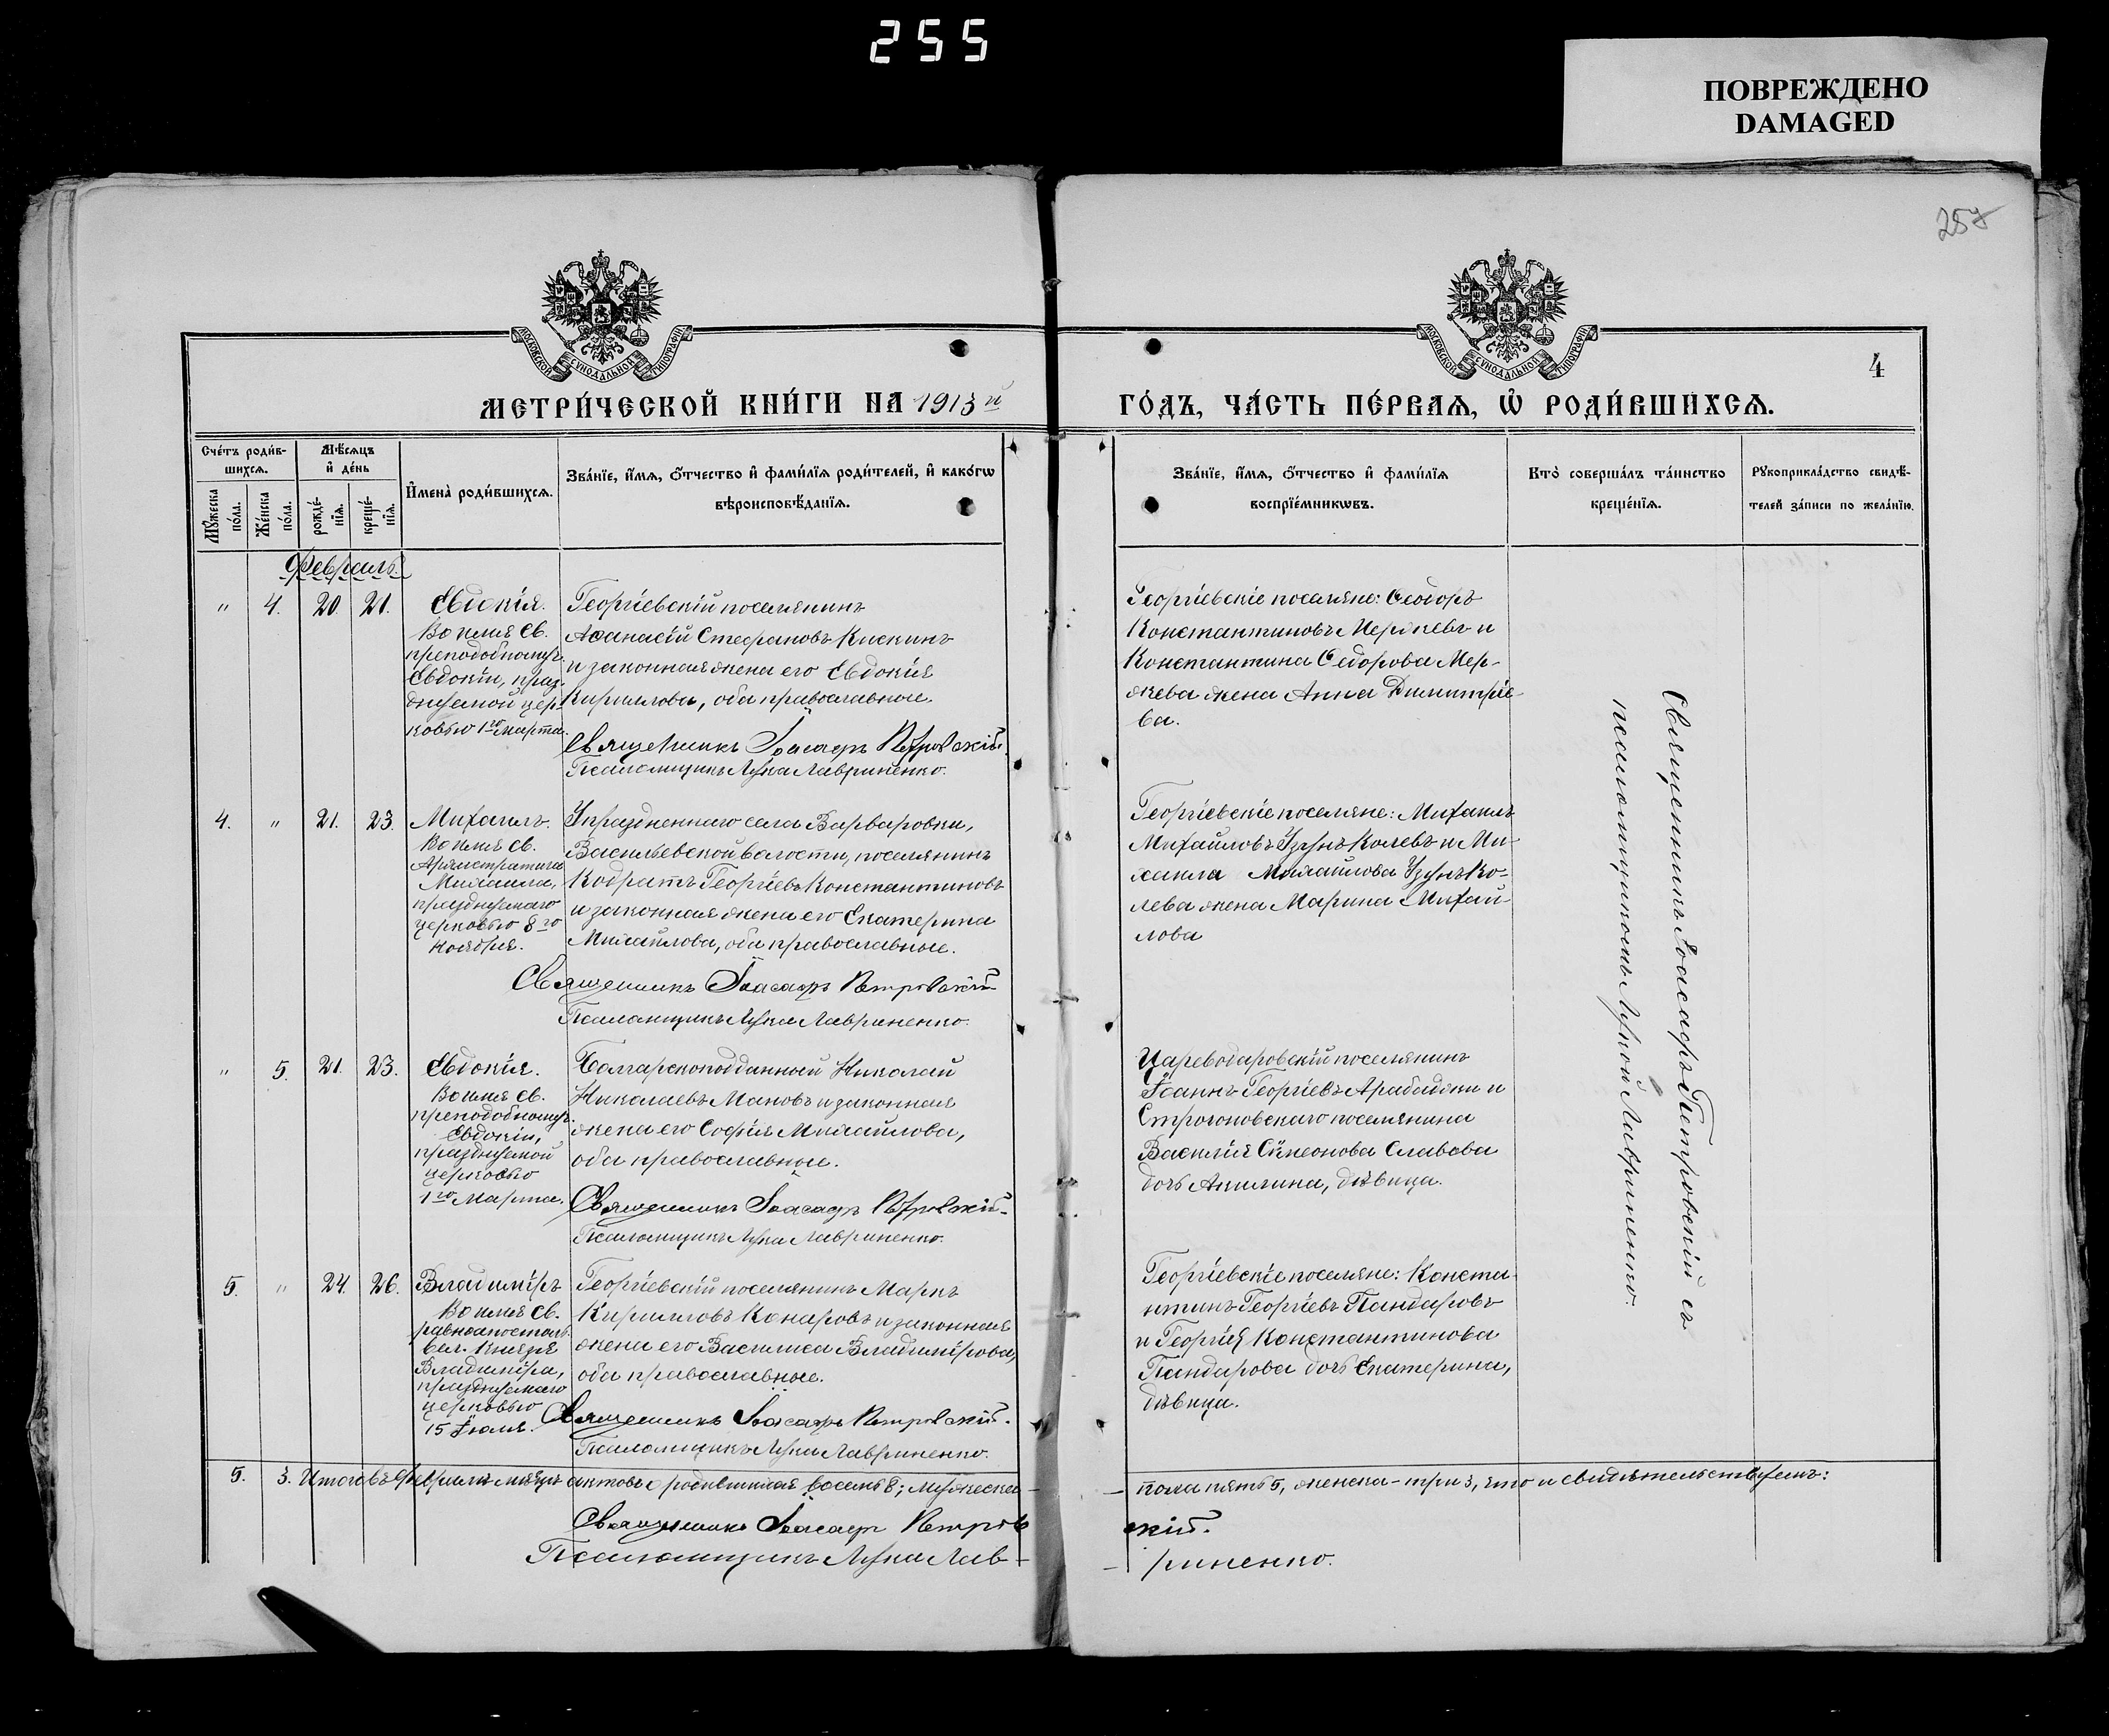 255
ПОВРЕЖДЕНО
DAMAGED
257
МОСКОВСКОЙ СѴНОДАЛЬНОЙ ТИПОГРАФІИ
МОСКОВСКОЙ СѴНОДАЛЬНОЙ ТИПОГРАФІИ
4
МЕТРИ́ЧЕСКОЙ КНИ́ГИ НА 1913й
ГО́ДЪ, ЧА́СТЬ ПЕ́РВАѦ, Ѡ҆ РОДИ́ВШИХСѦ.
Сче́тъ роди́в-
шихсѧ.
Мꙋ́жеска
по́ла.
Же́нска
по́ла.
Мѣ́сѧцъ
и҆ де́нь
рожде́-
нїѧ.
креще́-
нїѧ.
И҆мена̀ роди́вшихсѧ.
Зва́нїе, и҆́мѧ, ѻ҆́тчество и҆ фами́лїѧ роди́телей, и҆ како́гѡ
вѣроисповѣ́данїѧ.
Зва́нїе, и҆́мѧ, ѻ҆́тчество и҆ фами́лїѧ
воспрїе́мникѡвъ.
Кто̀ соверша́лъ та́инство
креще́нїѧ.
Рꙋкоприкла́дство свидѣ́-
телей за́писи по жела́нїю.
Февраль.
" 4. 20. 21. Евдокія.
Во имя св.
преподобномуч.
Евдокіи, праз-
днуемой цер-
ковью 1го Марта.
Георгіевскій поселянинъ
Аѳанасій Стефановъ Кискинъ
и законная жена его Евдокія
Кириллова, оба православные.
Священникъ Іоасафъ Петровскій.
Псаломщикъ Лука Лавриненко.
Георгіевскіе поселяне: Ѳеодоръ
Константиновъ Мержевъ и
Константина Ѳедорова Мер-
жева жена Анна Димитріе-
ва.
4. " 21. 23. Михаилъ.
Во имя св.
Архистратига
Михаила,
празднуемаго
церковью 8го
Ноября.
Упраздненнаго села Варваровки,
Васильевской волости, поселянинъ
Кодратъ Георгіевъ Константиновъ
и законная жена его Екатерина
Михайлова, оба православные.
Священникъ Іоасафъ Петровскій
Псаломщикъ Лука Лавриненко.
Георгіевскіе поселяне: Михаилъ
Михайловъ Узунъ Колевъ и Ми-
хаила Михайлова Узунъ Ко-
лева жена Марина Михай-
лова
" 5. 21. 23. Евдокія.
Во имя св.
преподобномуч.
Евдокіи,
празднуемой
церковью
1го Марта.
Болгарскоподданный Николай
Николаевъ Мановъ и законная
жена его Софія Михайлова,
оба православные.
Священникъ Іоасафъ Петровскій.
Псаломщикъ Лука Лавриненко.
Цареводаровскій поселянинъ
Іоаннъ Георгіевъ Арабаджи и
Строгоновскаго поселянина
Василія Сѵмеонова Славова
дочь Акилина, дѣвица.
5. " 24. 26. Владиміръ
Во имя св.
равноапостоль.
вел. Князя
Владиміра,
празднуемаго
церковью
15 Іюля.
Георгіевскій поселянинъ Маркъ
Кирилловъ Конаровъ и законная
жена его Василиса Владимірова,
оба православные.
Священникъ Іоасафъ Петровскій.
Псаломщикъ Лука Лавриненко.
Георгіевскіе поселяне: Конста-
нтинъ Георгіевъ Пандаровъ
и Георгія Константинова
Пандарова дочь Екатерина,
дѣвица.
Священникъ Іоасафъ Петровскій съ
псаломщикомъ Лукой Лавриненко.
5. 3. Итого въ Февралѣ мѣсяцѣ актовъ о родившихся восемь 8; мужеска -
- пола пять 5, женска - три 3, что и свидѣтельствуемъ:
Священникъ Іоасафъ Петров
скій.
Псаломщикъ Лука Лав-
- риненко.